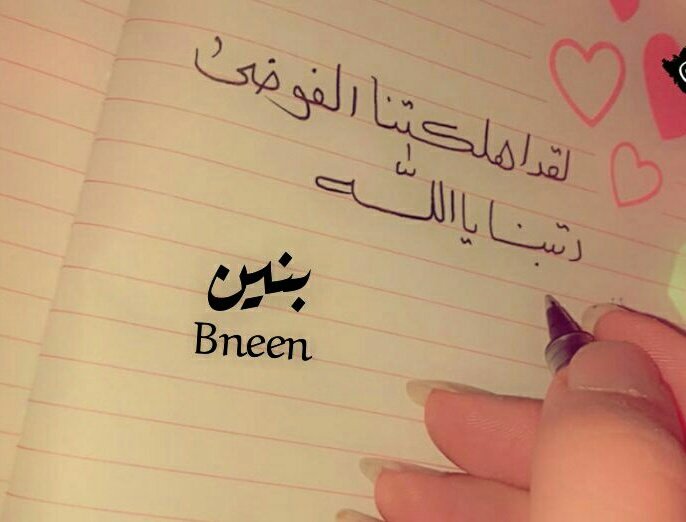 لقد اهلكتنا الفوضى
رتبنا يا اللّه
بنين
Bneen